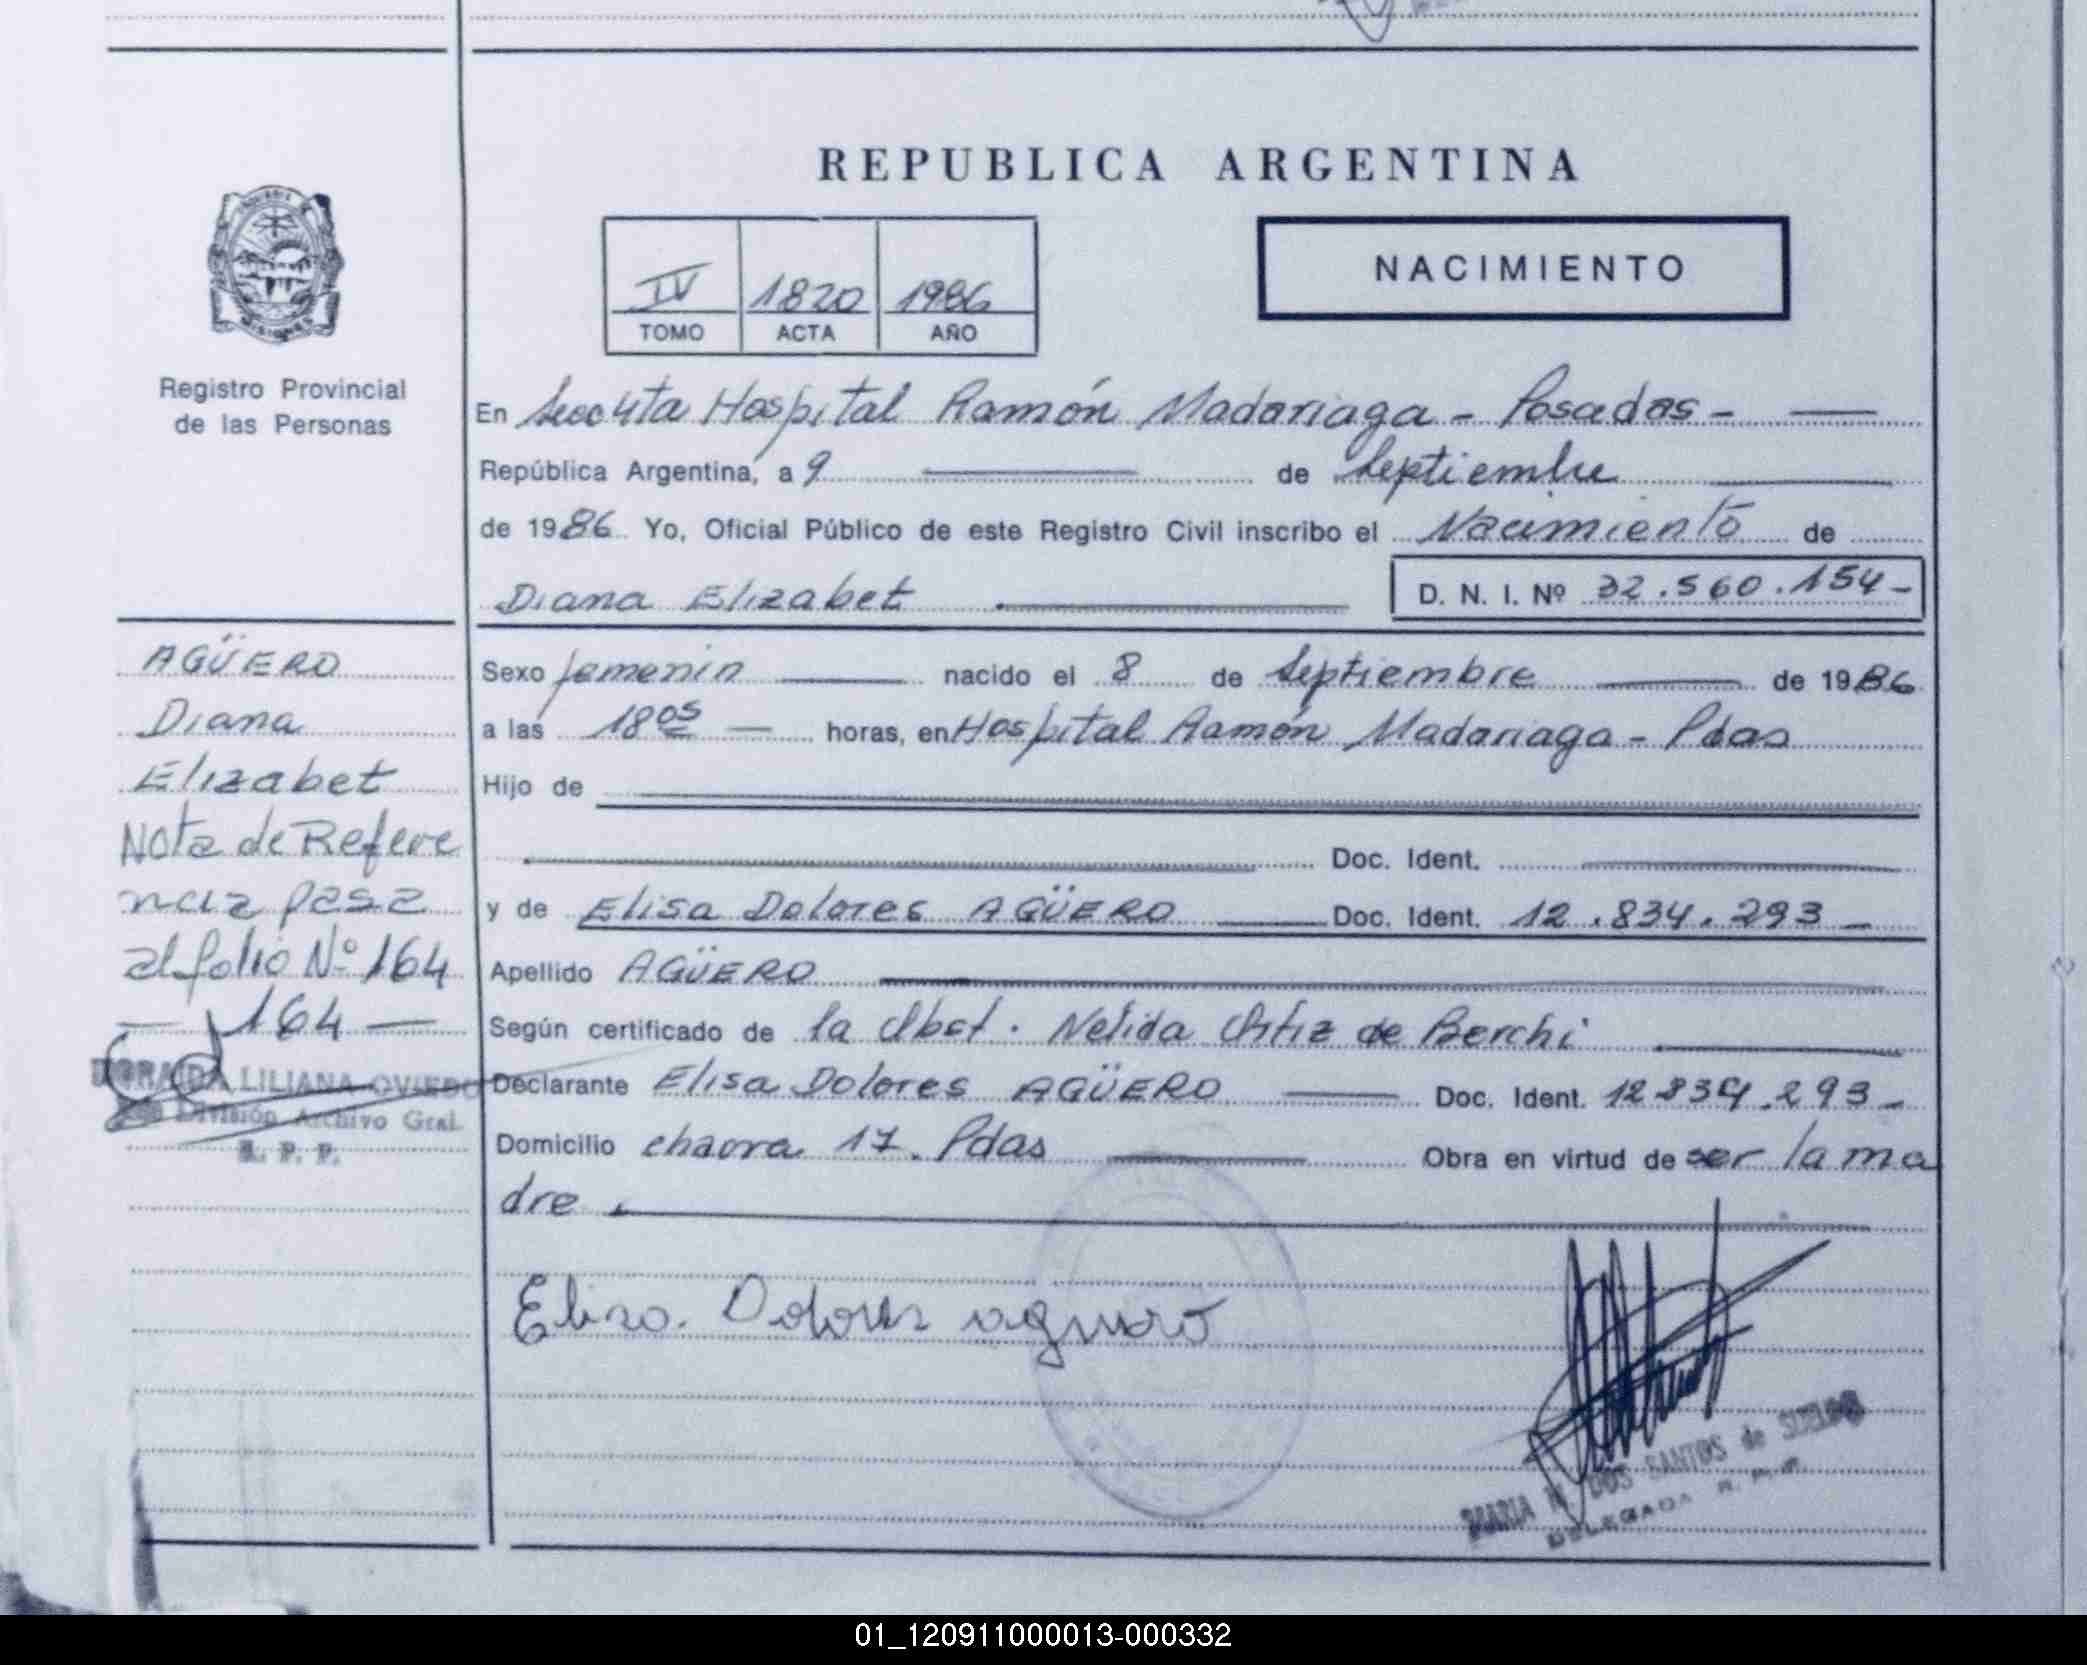 REPUBLICA ARGENTINA
IV 1820 1986
TOMO ACTA AÑO
NACIMIENTO
Registro Provincial
de las Personas
En Hospital Ramón Madariaga - Posadas -
República Argentina, a 9 de Septiembre
de 1986 Yo, Oficial Público de este Registro Civil inscribo el Nacimiento de
Diana Elizabet D. N. I. Nº 32.560.154-
AGÜERO
Diana
Elizabet
Nota de Refere
ncia pasa
al folio Nº 164
- 164 -
LILIANA OVIEDO
División Archivo Gral.
R. P. P.
Sexo femenin nacido el 8 de Septiembre de 1986
a las 18 05 horas, en Hospital Ramón Madariaga - Pdas
Hijo de
Doc. Ident.
y de Elisa Dolores AGÜERO Doc. Ident. 12.834.293
Apellido AGÜERO
Según certificado de la Obst. Nelida Ortiz de Berchi
Declarante Elisa Dolores AGÜERO Doc. Ident. 12.834.293-
Domicilio chacra 17. Pdas Obra en virtud de ser la ma
dre.
Elisa. Dolores aguero
MARIA M. DOS SANTOS de
DELEGADA R. P. P.
01_120911000013-000332